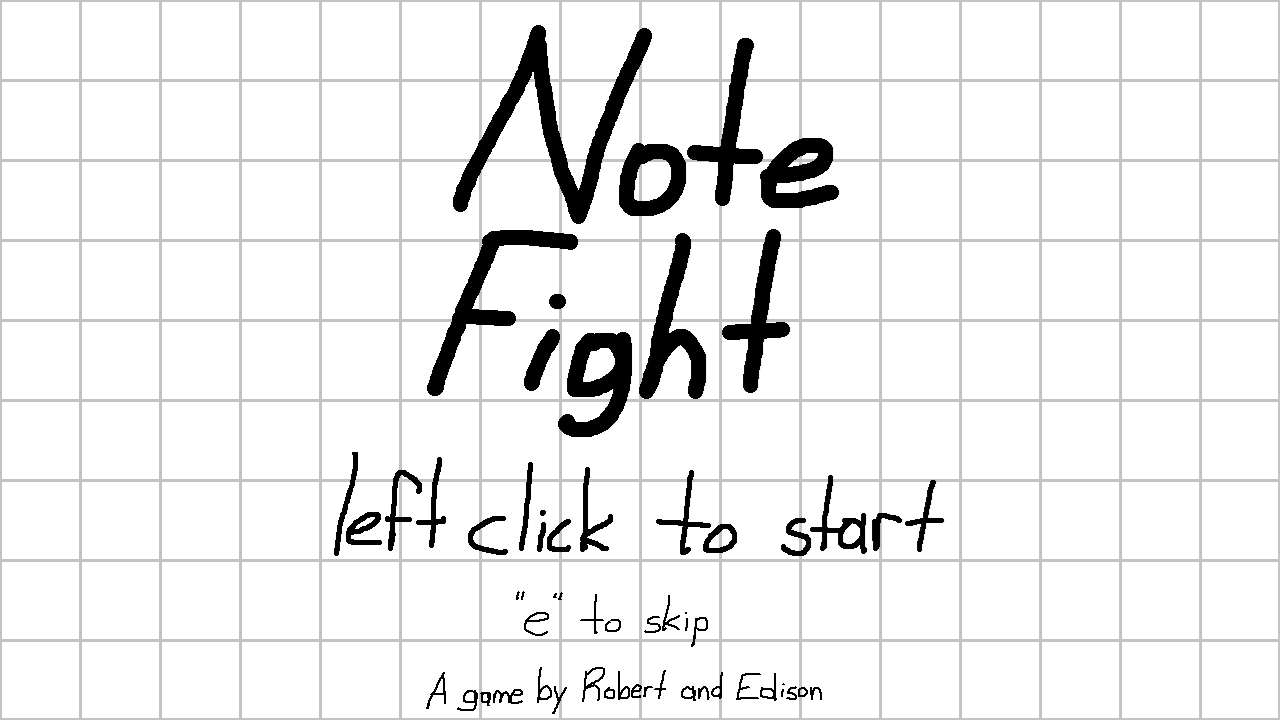 Note
Fight
left click to start
"e" to skip
A game by Robert and Edison